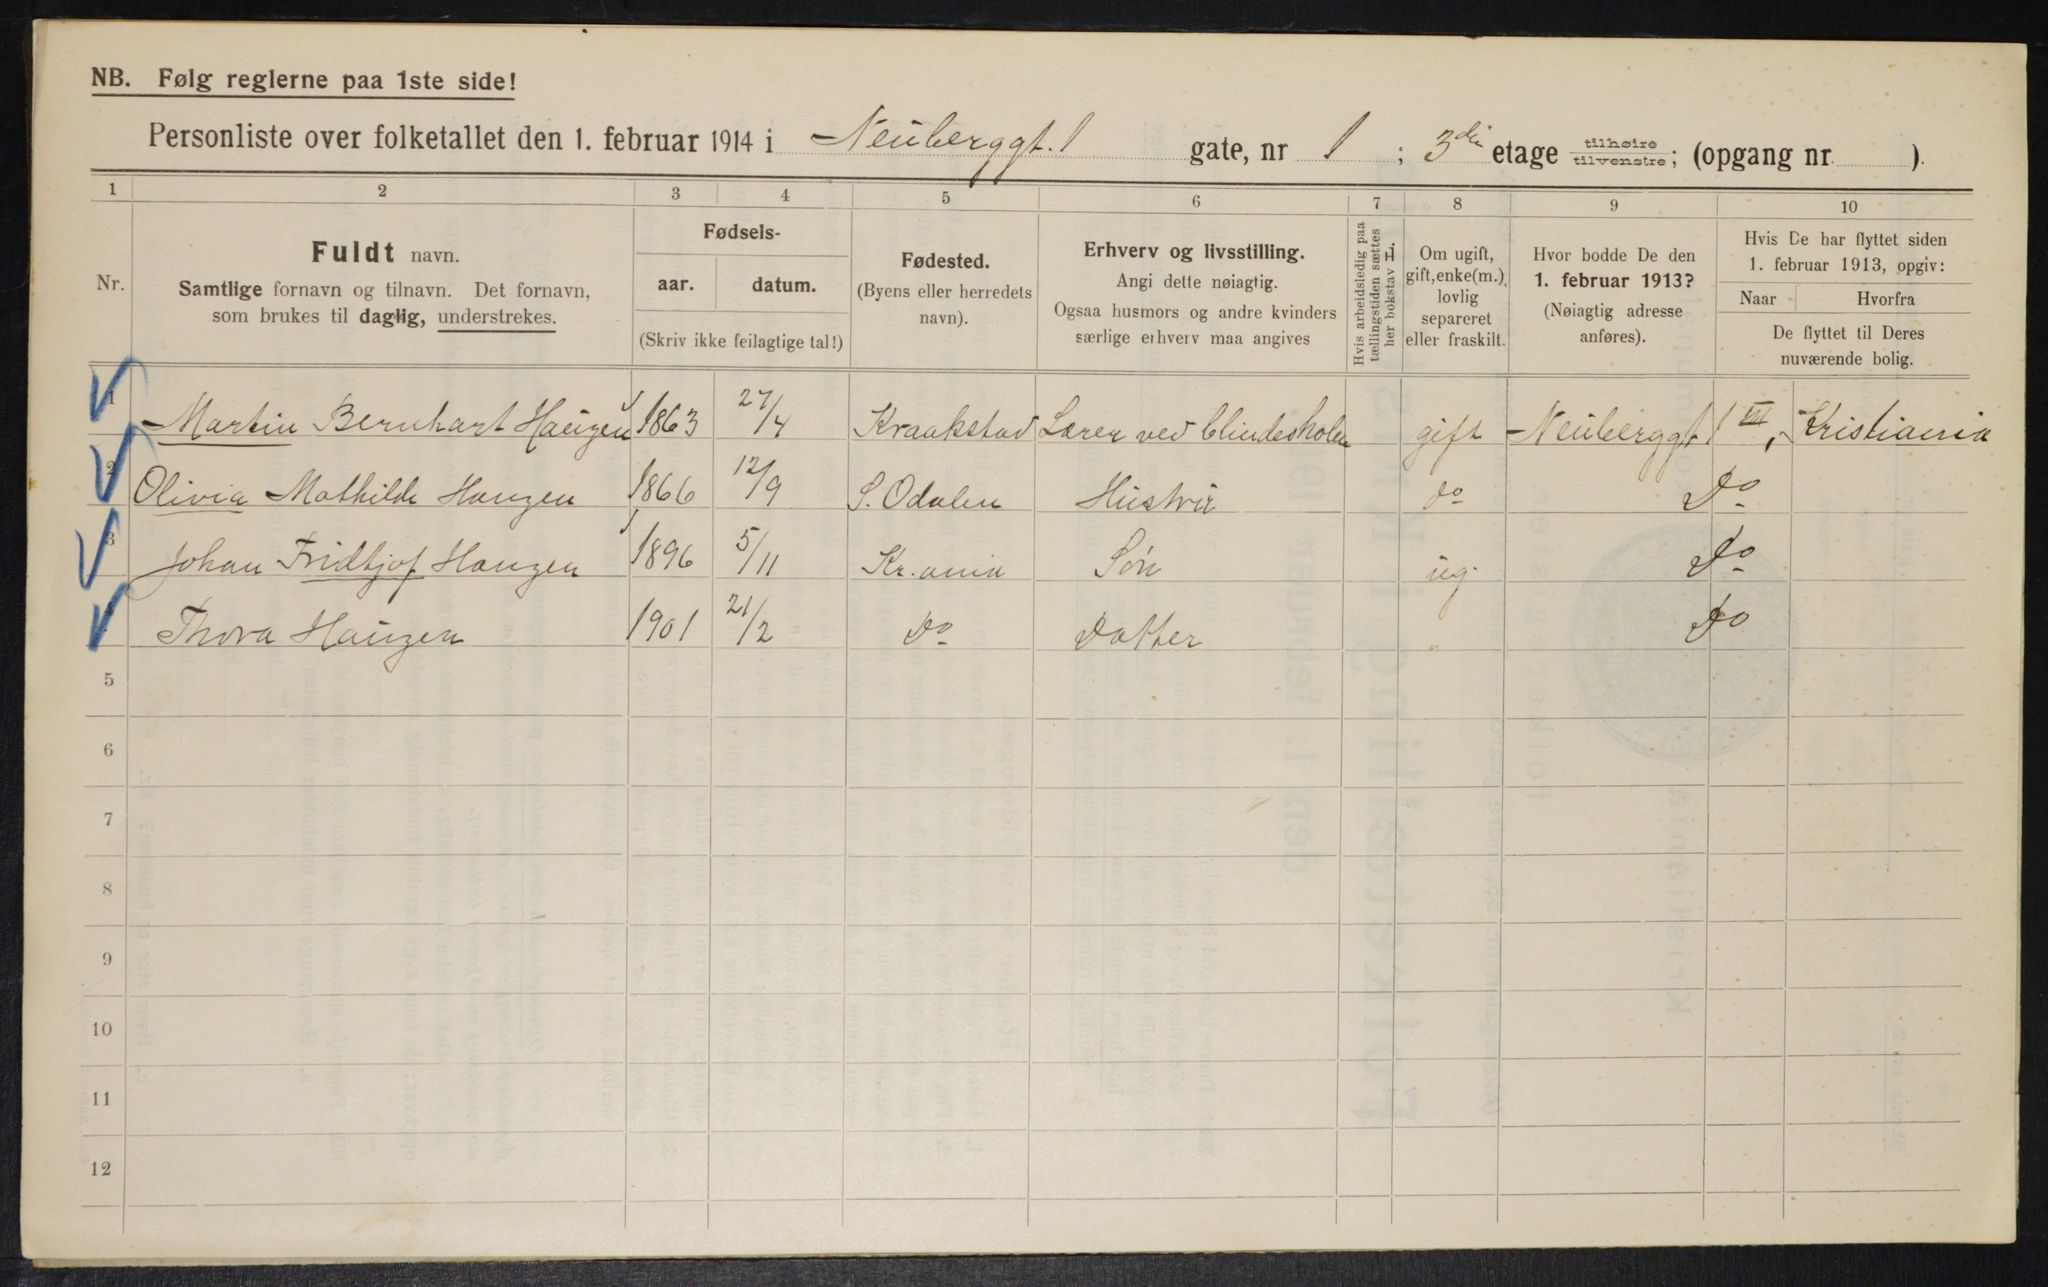 NB. Følg reglerne paa 1ste side!
Personliste over folketallet den 1. februar 1914 i Neuberggt. 1 gate, nr 1 ; 3die etage tilhøire tilvenstre; (opgang nr ).
1 2 3 4 5 6 7 8 9 10
Nr.
Fuldt navn.
Samtlige fornavn og tilnavn. Det fornavn,
som brukes til daglig, understrekes.
Fødsels-
aar. datum.
(Skriv ikke feilagtige tal!)
Fødested.
(Byens eller herredets
navn).
Erhverv og livsstilling.
Angi dette nøiagtig.
Ogsaa husmors og andre kvinders
særlige erhverv maa angives
Hvis arbeidsledig paa
tællingstiden sættes
her bokstav L.
Om ugift,
gift, enke(m.),
lovlig
separeret
eller fraskilt.
Hvor bodde De den
1. februar 1913?
(Nøiagtig adresse
anføres).
Hvis De har flyttet siden
1. februar 1913, opgiv:
Naar Hvorfra
De flyttet til Deres
nuværende bolig.
1 Martin Bernhart Hauzen 1863 27/4 Kraakstad Lærer ved blindeskolen gift Neuberggt 1 III, Kristiania
2 Olivia Mathilde Hauzen 1866 12/9 S. Odalen Hustru do Do
3 Johan Fridtjof Hauzen 1896 5/11 Kr.ania Søn ug. Do
4 Thora Hauzen 1901 21/2 Do Datter " Do
5
6
7
8
9
10
11
12